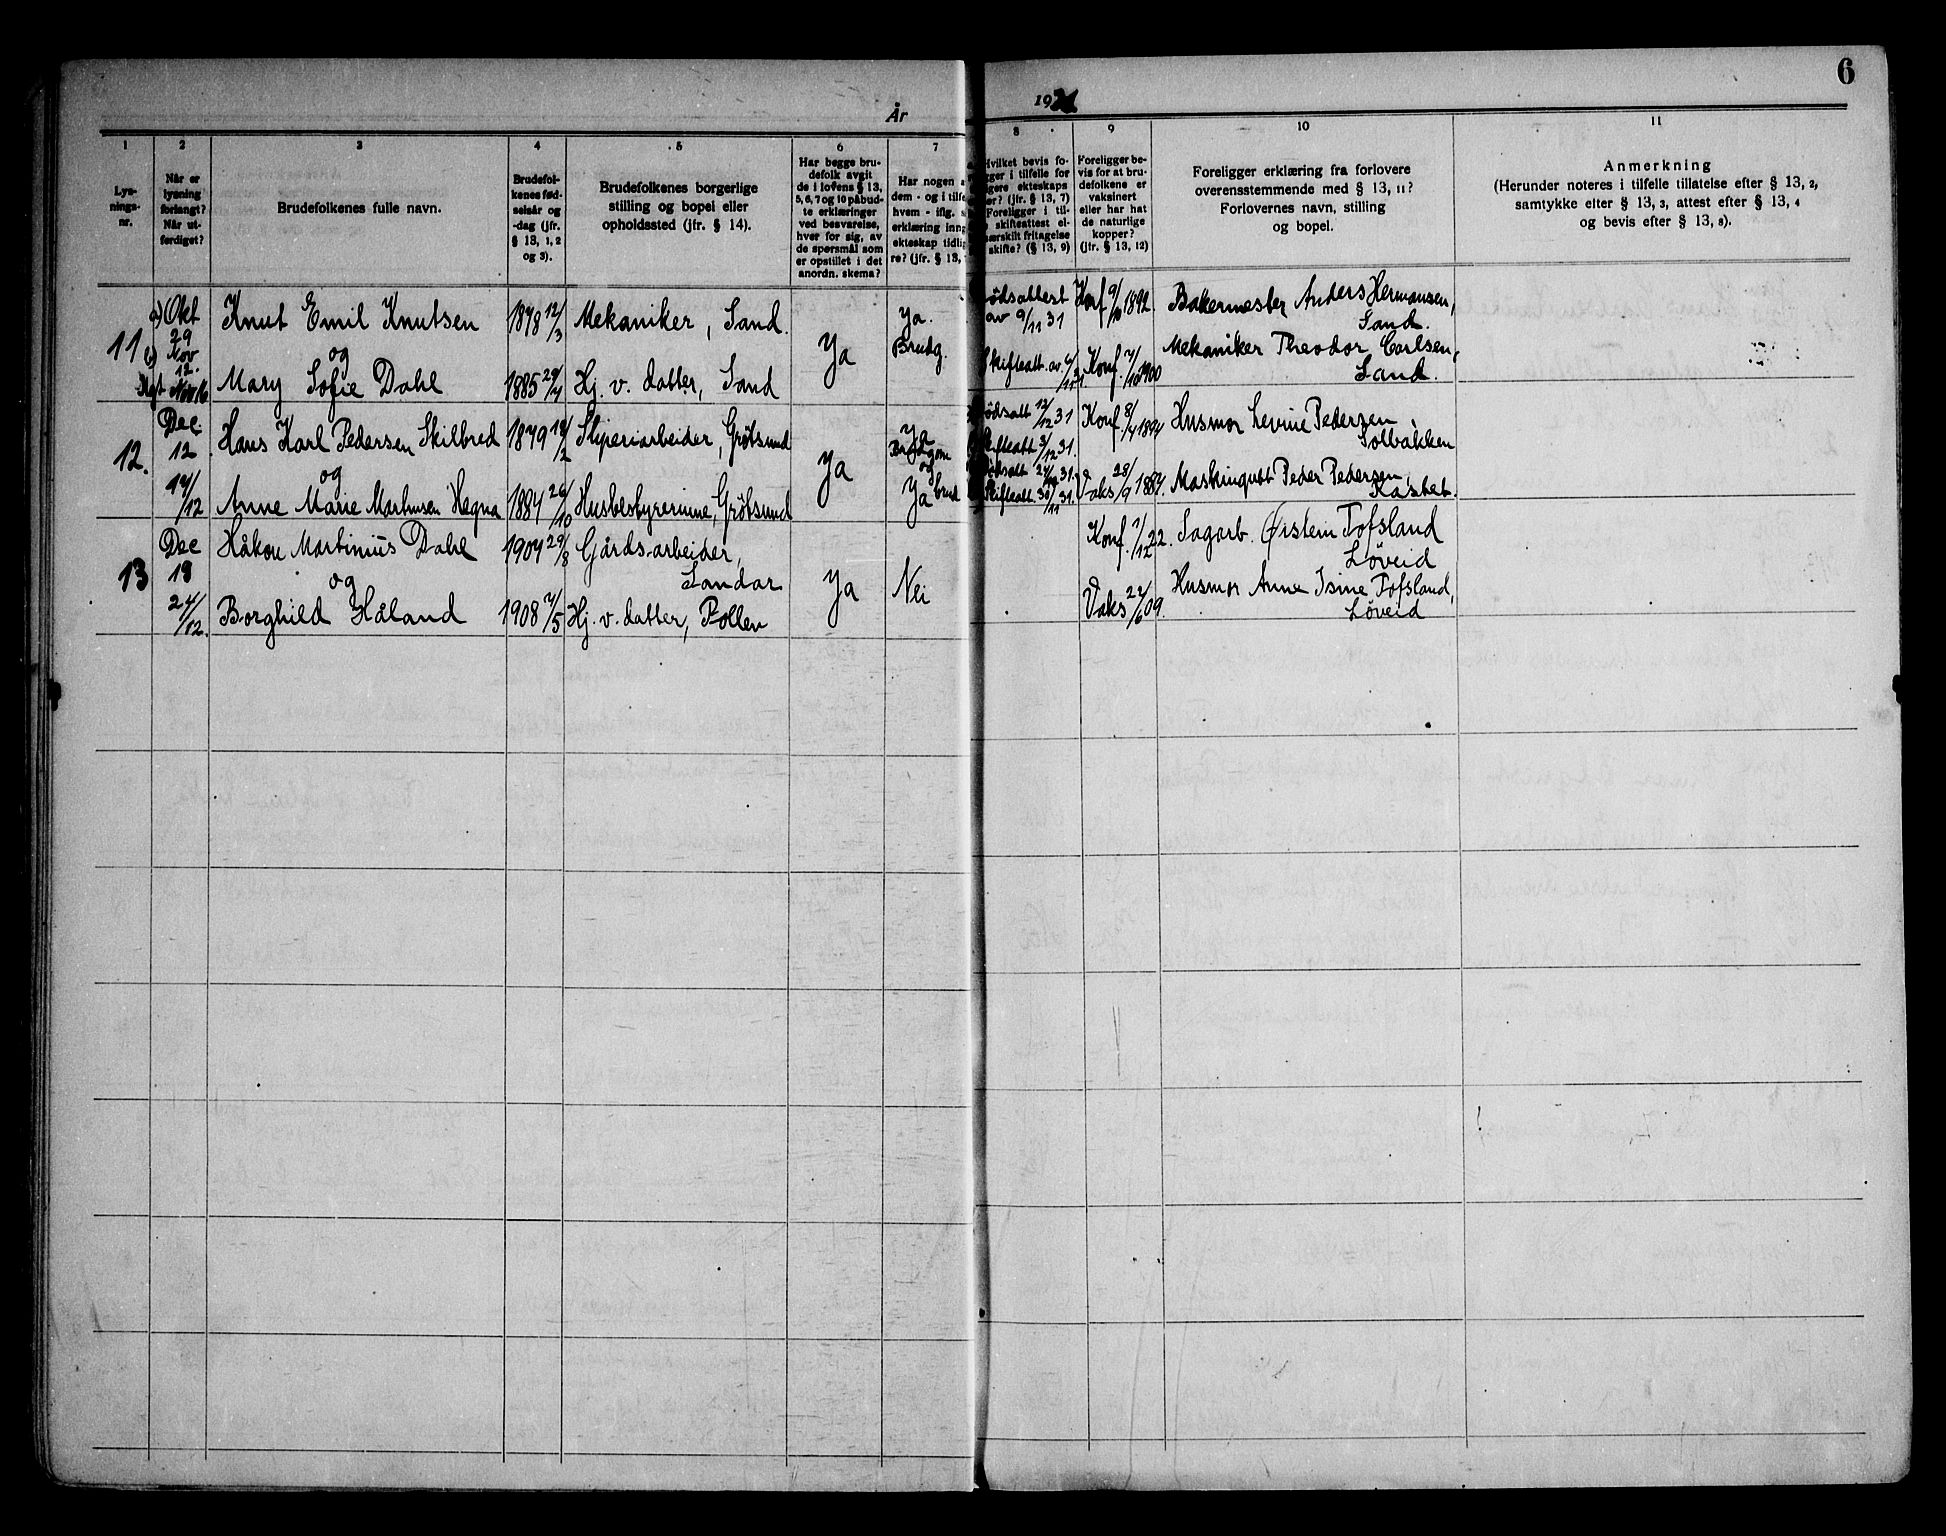 6
År 1931
1 2 3 4 5 6 7 8 9 10 11
Lys-
nings-
nr.
Når er
lysning
forlangt?
Når ut-
ferdiget?
Brudefolkenes fulle navn.
Brudefol-
kenes fød-
selsår og
-dag (jfr.
§ 13, 1, 2
og 3).
Brudefolkenes borgerlige
stilling og bopel eller
opholdssted (jfr. § 14).
Har begge bru-
defolk avgit
de i lovens § 13,
5, 6, 7 og 10 påbud-
te erklæringer
ved besvarelse,
hver for sig, av
de spørsmål som
er opstillet i det
anordn. skema?
Har nogen a
dem - og i tilfe
hvem - iflg.
erklæring inng
ekteskap tidlig
re? (jfr. § 13,
Hvilket bevis fo-
gger i tilfelle for
igere ekteskaps
er? (jfr. § 13, 7)
Foreligger i til-
skifteattest el-
særskilt fritagelse
skifte? (§ 13, 9)
Foreligger be-
vis for at bru-
defolkene er
vaksinert
eller har hat
de naturlige
kopper?
(jfr. § 13, 12)
Foreligger erklæring fra forlovere
overensstemmende med § 13, 11?
Forlovernes navn, stilling
og bopel.
Anmerkning
(Herunder noteres i tilfelle tillatelse efter § 13, 2,
samtykke efter § 13, 3, attest efter § 13, 4
og bevis efter § 13, 8).
11
Okt
29
Nov
12.
Nov 16
Knut Emil Knutsen
og
Mary Sofie Dahl
1878 12/3
1885 29/4
Mekaniker, Sand.
Hj. v. datter, Sand
Ja
Ja.
Brudg.
ødsattest
av 9/11 31
Skifteatt. av
Konf 9/10 1892
Konf. 7/10 1900
Bakermester Anders Hermansen,
Sand.
Mekaniker Theodor Carlsen,
Sand.
12.
Dec.
12
14/12
Hans Karl Pedersen Skilbred
og
Anne Marie Martinsen Hegna
1879 18/2
1884 26/10
Sliperiarbeider, Grøtsund
Husbestyrerinne, Grøtsund
Ja
Ja
Brudgom
og
Ja brud
ødsatt 12/12 31
kifteatt 3/12 31.
Skifteatt 30/11 31.
Konf. 8/4 1894
Vaks 28/9 1884.
Husmor Levine Pedersen
Solbakken
Maskinputt Peder Pedersen,
Kastet.
13
Dec
18
24/12.
Håkon Martinius Dahl
og
Borghild Håland
1904 29/8
1908 7/5
Gårdsarbeider,
Sandar
Hj. v. datter, Pollen
Ja
Nei
Konf. 1/12 22.
Vaks 22/6 09.
Sagarb. Øistein Tofsland
Løveid
Husmor Anne Isine Tofsland,
Løveid